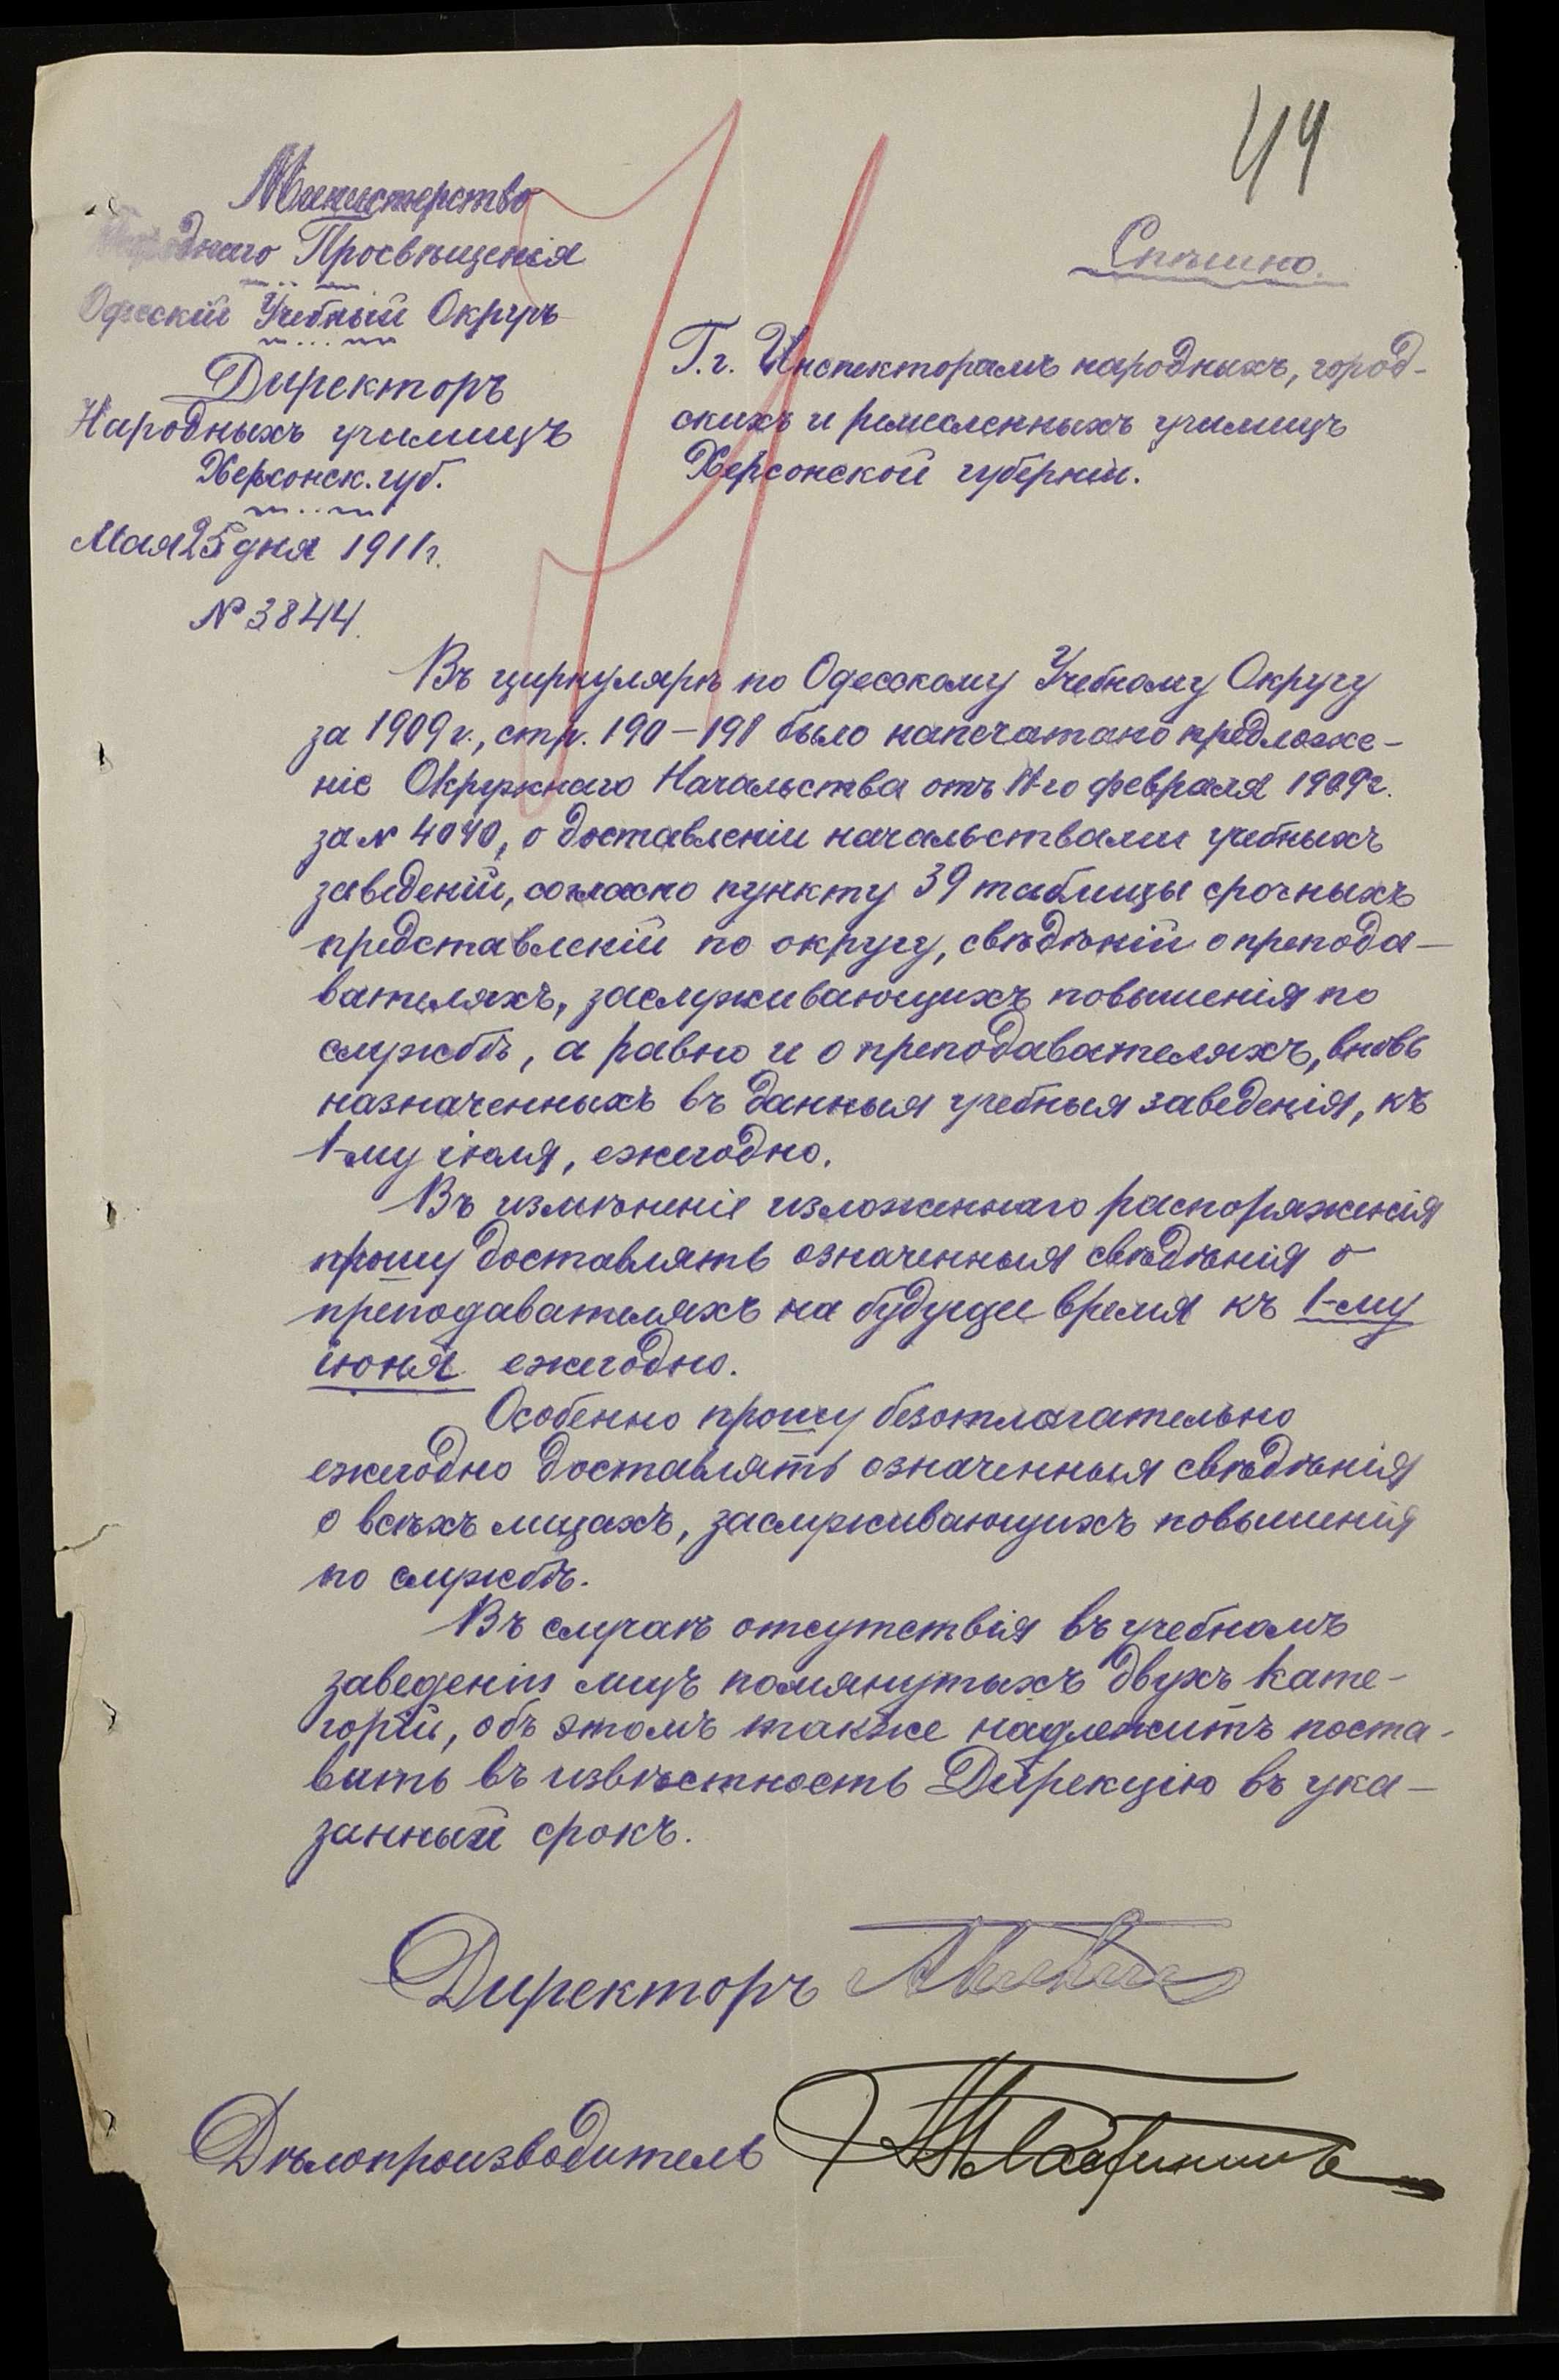 44
Министерство
Народнаго Просвѣщенія
Одесскій Учебный Округъ
Директоръ
Народныхъ училищъ
Херсонск. губ.
Мая 25 дня 1911 г.
№ 3844.
Спѣшно.
Г.г. Инспекторамъ народныхъ, город-
скихъ и ремесленныхъ училищъ
Херсонской губерніи.
Въ циркулярѣ по Одесскому Учебному Округу
за 1909 г., стр. 190-191 было напечатано предложе-
ніе Окружнаго Начальства отъ 11-го февраля 1909 г.
за № 4040, о доставленіи начальствами учебныхъ
заведеній, согласно пункту 39 таблицы срочныхъ
представленій по округу, свѣдѣній о препода-
вателяхъ, заслуживающихъ повышенія по
службѣ, а равно и о преподавателяхъ, вновь
назначенныхъ въ данныя учебныя заведенія, къ
1-му іюля, ежегодно.
Въ измѣненіе изложеннаго распоряженія
прошу доставлять означенныя свѣдѣнія о
преподавателяхъ на будущее время къ 1-му
іюня ежегодно.
Особенно прошу безотлагательно
ежегодно доставлять означенныя свѣдѣнія
о всѣхъ лицахъ, заслуживающихъ повышенія
по службѣ.
Въ случаѣ отсутствія въ учебномъ
заведеніи лицъ помянутыхъ двухъ кате-
горій, объ этомъ также надлежитъ поста-
вить въ извѣстность Дирекцію въ ука-
занный срокъ.
Директоръ
Дѣлопроизводитель